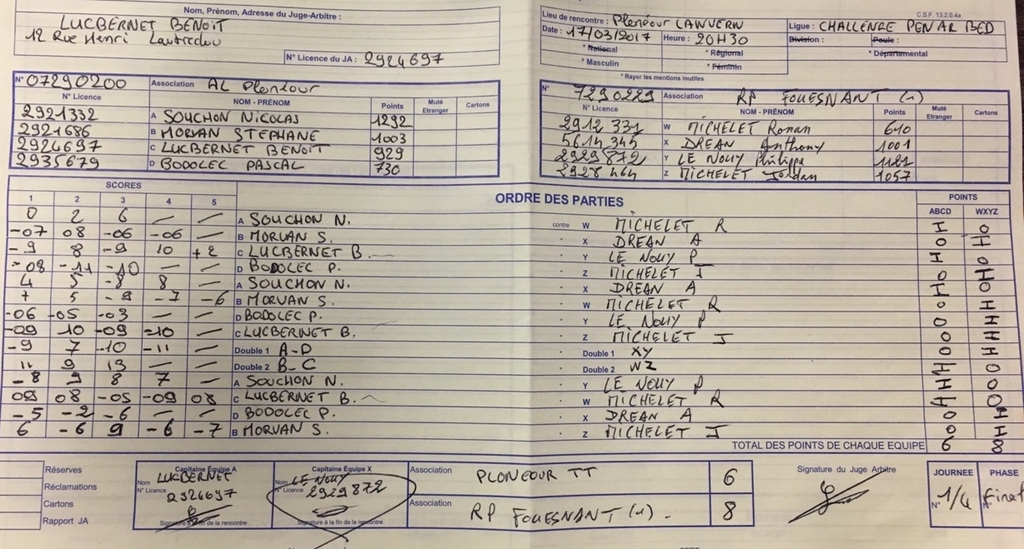 Nom, Prénom, Adresse du Juge-Arbitre :
LUCBERNET BENOIT
12 Rue Henri
N° Licence du JA : 2924697
C.S.F. 13.2.0.4e
Lieu de rencontre : Plonéour LANVERN
Ligue : CHALLENGE PEN AR BED
Date : 17/03/2017 Heure : 20H30
Division : Poule :
* National * Régional * Départemental
* Masculin * Féminin
* Rayer les mentions inutiles
N° 07290200 Association AL Plonéour
N° Licence NOM - PRÉNOM Points Muté Etranger Cartons
2921332 A SOUCHON NICOLAS 1292
2921686 B MORVAN STEPHANE 1003
2924697 C LUCBERNET BENOIT 929
2935679 D BODOLEC PASCAL 730
N° 7290229 Association RP FOUESNANT (1)
N° Licence NOM - PRÉNOM Points Muté Etranger Cartons
2912331 W MICHELET Ronan 610
5614345 X DREAN Anthony 1001
2929872 Y LE NOUY Philippe
2928464 Z MICHELET Jordan 1057
SCORES ORDRE DES PARTIES POINTS
1 2 3 4 5 ABCD WXYZ
0 2 6 — — A SOUCHON N. contre W MICHELET R 1 0
-07 08 -06 -06 — B MORVAN S. X DREAN A 0 1
-9 8 -9 10 +2 C LUCBERNET B. Y LE NOUY P 1 0
-08 -11 -10 — — D BODOLEC P. Z MICHELET J 0 1
4 5 -8 8 — A SOUCHON N. X DREAN A 1 0
7 5 -9 -7 -6 B MORVAN S. W MICHELET R 0 1
-06 -05 -03 — — D BODOLEC P. Y LE NOUY P 0 1
-09 10 -09 -10 — C LUCBERNET B. Z MICHELET J 0 1
-9 7 -10 -11 — Double 1 A-D Double 1 XY 0 1
11 9 13 — — Double 2 B-C Double 2 WZ 1 0
-8 9 8 7 — A SOUCHON N. Y LE NOUY P 1 0
09 08 -05 -09 08 C LUCBERNET B. W MICHELET R 1 0
-5 -2 -6 — — D BODOLEC P. X DREAN A 0 1
6 -6 9 -6 -7 B MORVAN S. Z MICHELET J 0 1
TOTAL DES POINTS DE CHAQUE EQUIPE 6 8
Réserves
Réclamations
Cartons
Rapport JA
Capitaine Équipe A
Nom LUCBERNET
N° Licence 2924697
Signature à la fin de la rencontre
Capitaine Équipe X
Nom LE NOUY
N° Licence 2929872
Signature à la fin de la rencontre
Association PLONEOUR TT 6
Association RP FOUESNANT (1). 8
Signature du Juge Arbitre
JOURNEE PHASE
N° 1/4 N° Final